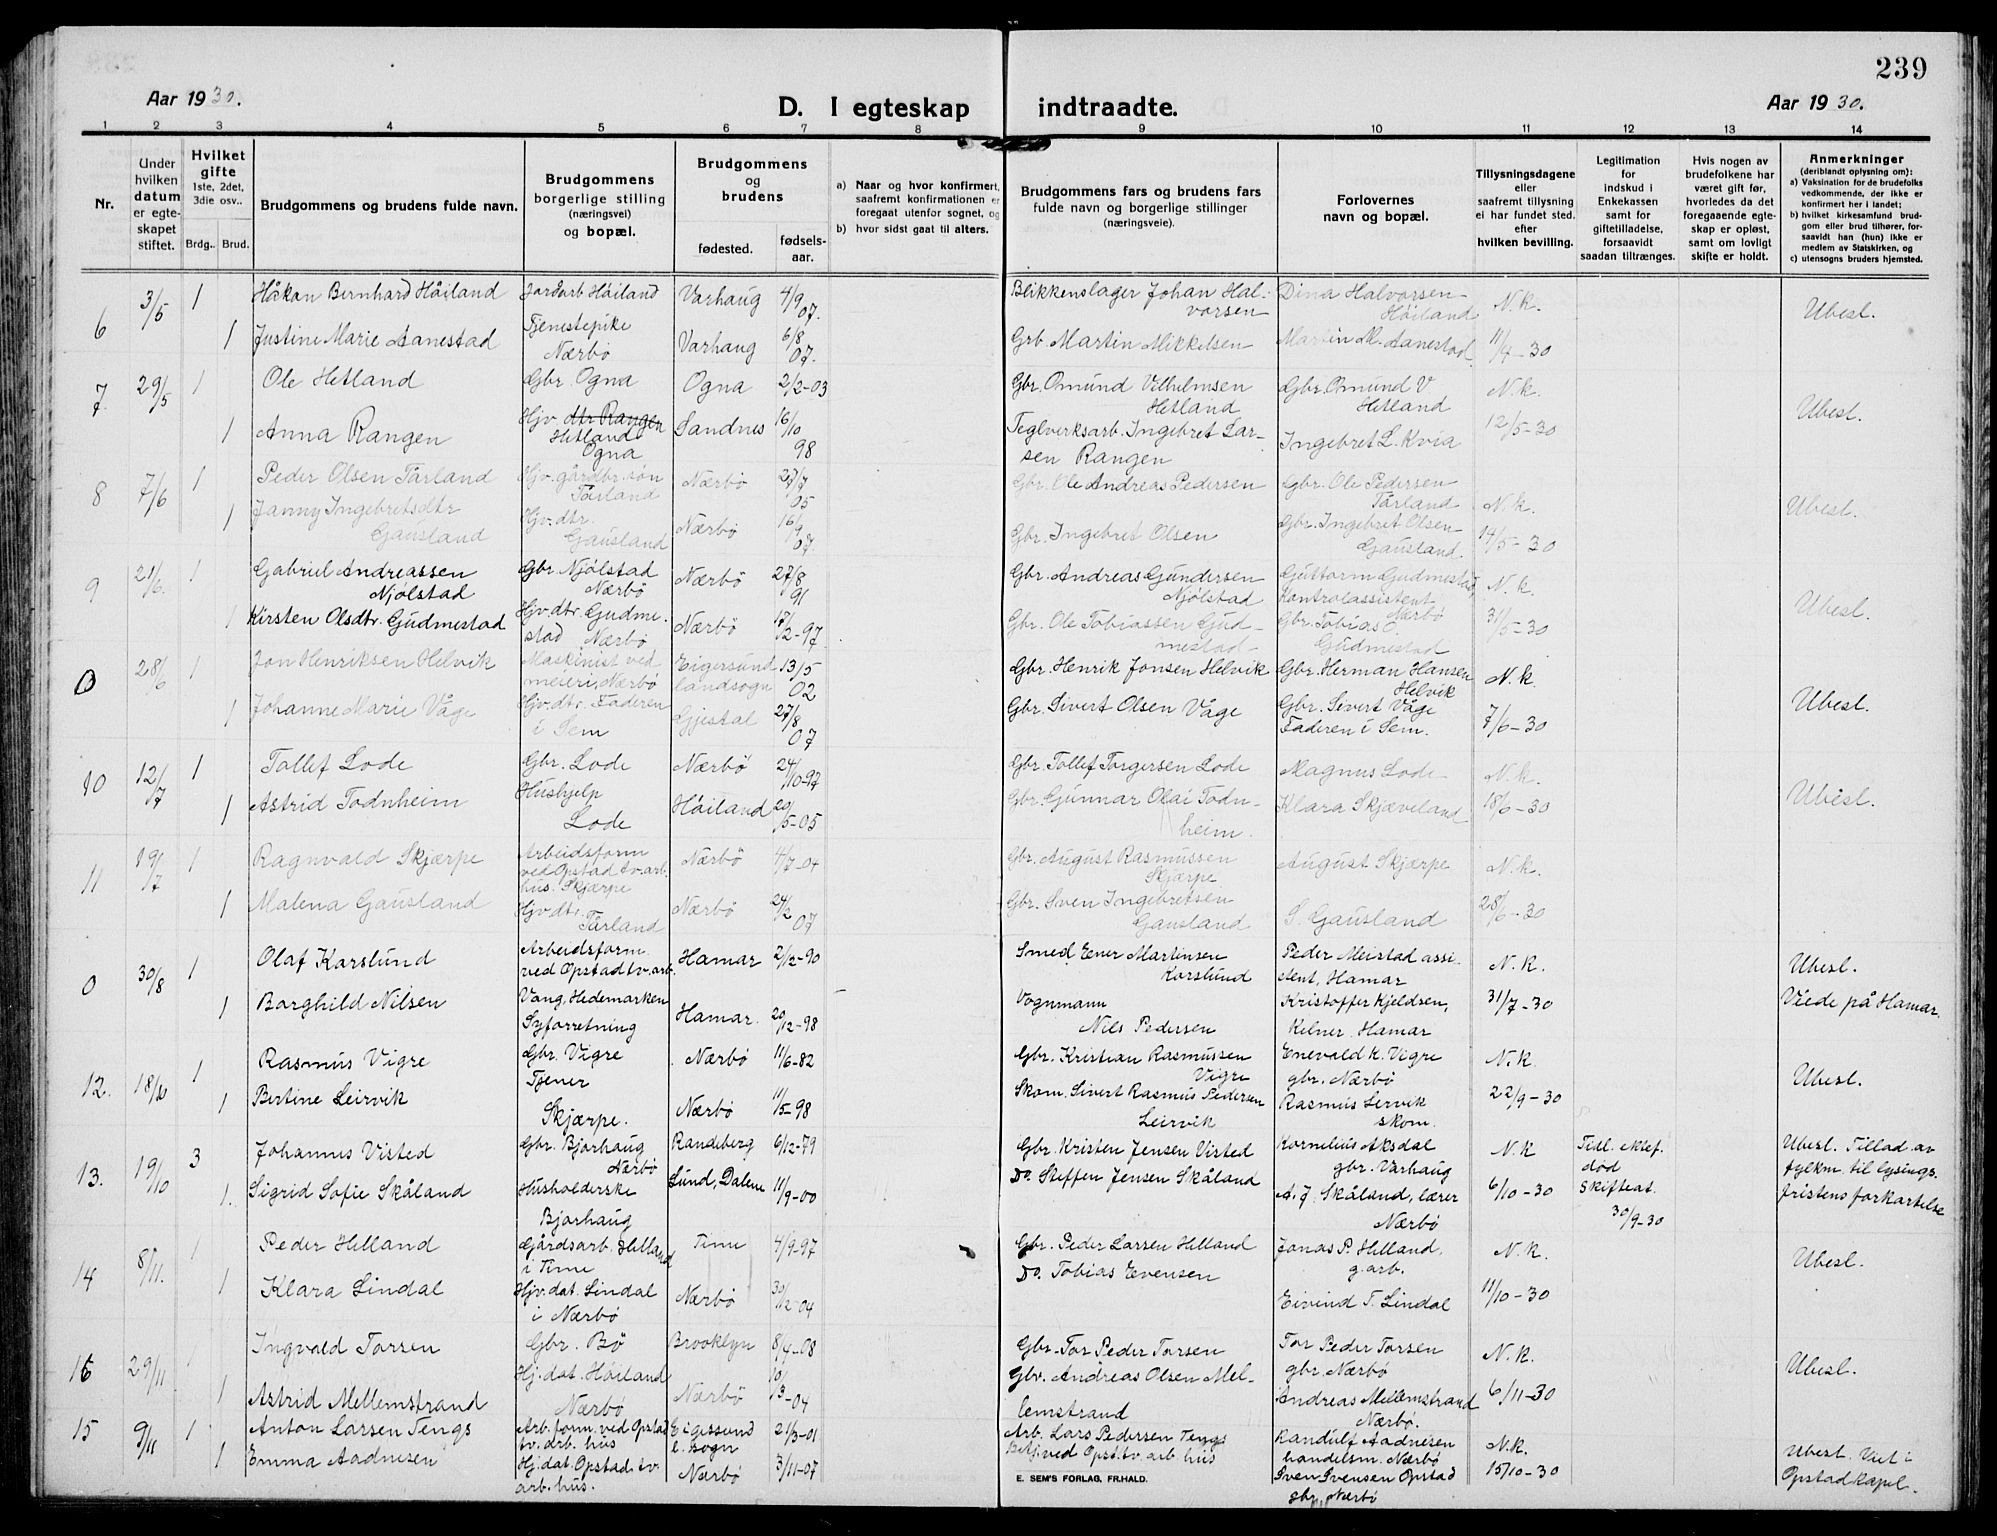 239
Aar 1930.
D. I egteskap indtraadte.
Aar 1930.
1 2 3 4 5 6 7 8 9 10 11 12 13 14
Nr.
Under hvilken datum er egteskapet stiftet.
Hvilket gifte 1ste, 2det, 3die osv..
Brdg.. Brud.
Brudgommens og brudens fulde navn.
Brudgommens borgerlige stilling (næringsvei) og bopæl.
Brudgommens og brudens
fødested. fødselsaar.
a) Naar og hvor konfirmert, saafremt konfirmationen er foregaat utenfor sognet, og
b) hvor sidst gaat til alters.
Brudgommens fars og brudens fars fulde navn og borgerlige stillinger (næringsveie).
Forlovernes navn og bopæl.
Tillysningsdagene eller saafremt tillysning ei har fundet sted. efter hvilken bevilling.
Legitimation for indskud i Enkekassen samt for giftetilladelse, forsaavidt saadan tiltrænges.
Hvis nogen av brudefolkene har været gift før, hvorledes da det foregaaende egteskap er opløst, samt om lovligt skifte er holdt.
Anmerkninger (deriblandt oplysning om):
a) Vaksination for de brudefolks vedkommende, der ikke er konfirmert her i landet;
b) hvilket kirkesamfund brudgom eller brud tilhører, forsaavidt han (hun) ikke er medlem av Statskirken, og
c) utensogns bruders hjemsted.
6 3/5 1 Håkon Bernhard Håiland Jordarb Håiland Varhaug 4/9 07. Blikkenslager Johan Halvorsen Dina Halvorsen Håiland N.k. Ubesl.
1 Justine Marie Aanestad Tjenestepike Nærbö Varhaug 6/8 07. Grb. Martin Mikkelsen Martin M. Aanestad 11/4-30
7 29/5 1 Ole Hetland Gbr. Ogna Ogna 2/2-03 Gbr. Omund Vilhelmsen Hetland Gbr. Omund V Hetland N.k. Ubesl.
1 Anna Rangen Hjv. dtr Rangen Hetland Ogna Sandnes 16/10 98 Teglverksarb. Ingebret Larsen Rangen Ingebret L. Kvia 12/5-30
8 7/6 1 Peder Olsen Tårland Hjv. gårdbr. søn Tårland Nærbö 27/7 05 Gbr. Ole Andreas Pedersen Gbr. Ole Pedersen Tårland N.k. Ubesl.
1 Janny Ingebretsdtr Gausland Hjv. dtr. Gausland Nærbö 16/9 07. Gbr. Ingebret Olsen Gbr. Ingebret Olsen Gausland. 14/5-30
9 21/6. 1 Gabriel Andreassen Njølstad Gbr. Njølstad Nærbö Nærbö 27/8 91 Gbr. Andreas Gundersen Njølstad Guttorm Gudmestad Kontrolassistent Nærbö N.k. Ubesl.
1 Kirsten Olsdtr. Gudmestad Hjv. dtr. Gudmestad Nærbö Nærbö 17/2-97 Gbr. Ole Tobiassen Gudmestad Gbr. Tobias O. Gudmestad 31/5-30
0 28/6 1 Jon Henriksen Helvik Maskinist ved meieri, Nærbö Eigersund landsogn 13/5 02 Gbr. Henrik Jonsen Helvik Gbr. Herman Hansen Helvik N.k. Ubesl.
1 Johanne Marie Våge Hjv. dtr. Faderen i Sem Gjestal 27/8 07 Gbr. Sivert Olsen Våge Gbr. Sivert Våge Faderen i Sem. 7/6-30
10 12/7 1 Tollef Lode Gbr. Lode Nærbö 24/10-97 Gbr. Tollef Torgersen Lode Magnus Lode N.k. Ubesl.
1 Astrid Todnheim Hushjelp Lode Höiland 20/5-05 Gbr. Gunnar Olai Todnheim. Klara Skjæveland 18/6-30
11 19/7 1 Ragnvald Skjærpe Arbeidsform ved Opstad tv. arb. hus. Skjærpe Nærbö 4/7-04 Gbr. August Rasmussen Skjærpe August Skjærpe N.k.
1 Malena Gausland Hjv. dtr. Tårland Nærbö 24/2 07 Gbr. Sven Ingebretsen Gausland S. Gausland 28/6-30
0 30/8 1 Olaf Korslund Arbeidsform ved Opstad tv. arb. Hamar 2/12-90 Smed Ener Martinsen Korslund Peder Meistad assistent, Hamar N.k. Ubesl. Viede på Hamar.
1 Borghild Nilsen Vang, Hedemarken Syforretning Hamar. 20/12-98 Vognmann Nils Pedersen Kristoffer Kjeldsen, Kelner Hamar 31/7-30
12. 18/10 1 Rasmus Vigre Gbr. Vigre Nærbö 11/6-82 Gbr. Kristian Rasmussen Vigre Enevald K. Vigre gbr. Nærbö N.k Ubesl.
1 Bertine Leirvik Tjener Skjærpe. Nærbö 11/5-98 Skom. Sivert Rasmus Pedersen Leirvik Rasmus Lervik skom. 22/9-30
13. 19/10 3 Johannes Visted Gbr. Bjorhaug Nærbö Randeberg 6/12-79 Gbr. Kristen Jensen Visted Kornelius Aksdal gbr. Varhaug N.k Tidl. ektef. død Skifteat. 30/9-30 Ubesl. Tillad. av fylkm. til lysingsfristens forkortelse
1. Sigrid Sofie Skåland Husholderske Bjorhaug Lund, Dalene 11/9-00 Do. Steffen Jensen Skåland A. J. Skåland, lærer Nærbö 6/10-30
14 8/11. 1 Peder Helland Gårdsarb. Helland i Time Time 4/9-97 Gbr. Peder Larsen Helland Jonas P. Helland, g.arb. N.k. Ubesl.
1 Klara Lindal Hjv. dat. Lindal i Nærbö Nærbö 30/12-04 Do. Tobias Evensen Eivind T. Lindal 11/10-30
16 29/11 1 Ingvald Torsen Gbr. Bö Brooklyn 8/4-08 Gbr. Tor Peder Torsen Tor Peder Torsen gbr. Nærbö N.k. Ubesl.
1 Astrid Mellemstrand Hj. dat. Höiland Nærbö Nærbö 10/3-04 Gbr. Andreas Olsen Mellemstrand Andreas Mellemstrand Nærbö. 6/11-30
15 9/11 1 Anton Larsen Tengs Arb. form. ved Opstad tv. arb. hus Eigersund l. sogn 21/3-01 Arb. Lars Pedersen Tengs Randulf Aadnesen handelsm. Nærbö N.k. Ubesl. Viet i Opstad kapel.
1 Emma Aadnesen Hj. dat. Opstad tv. arb. hus. Nærbö 3/11-07 Betj ved Opst. tv. arb hus Sven Svensen Opstad gbr. Nærbö 15/10-30
E. SEM'S FORLAG, FR.HALD.